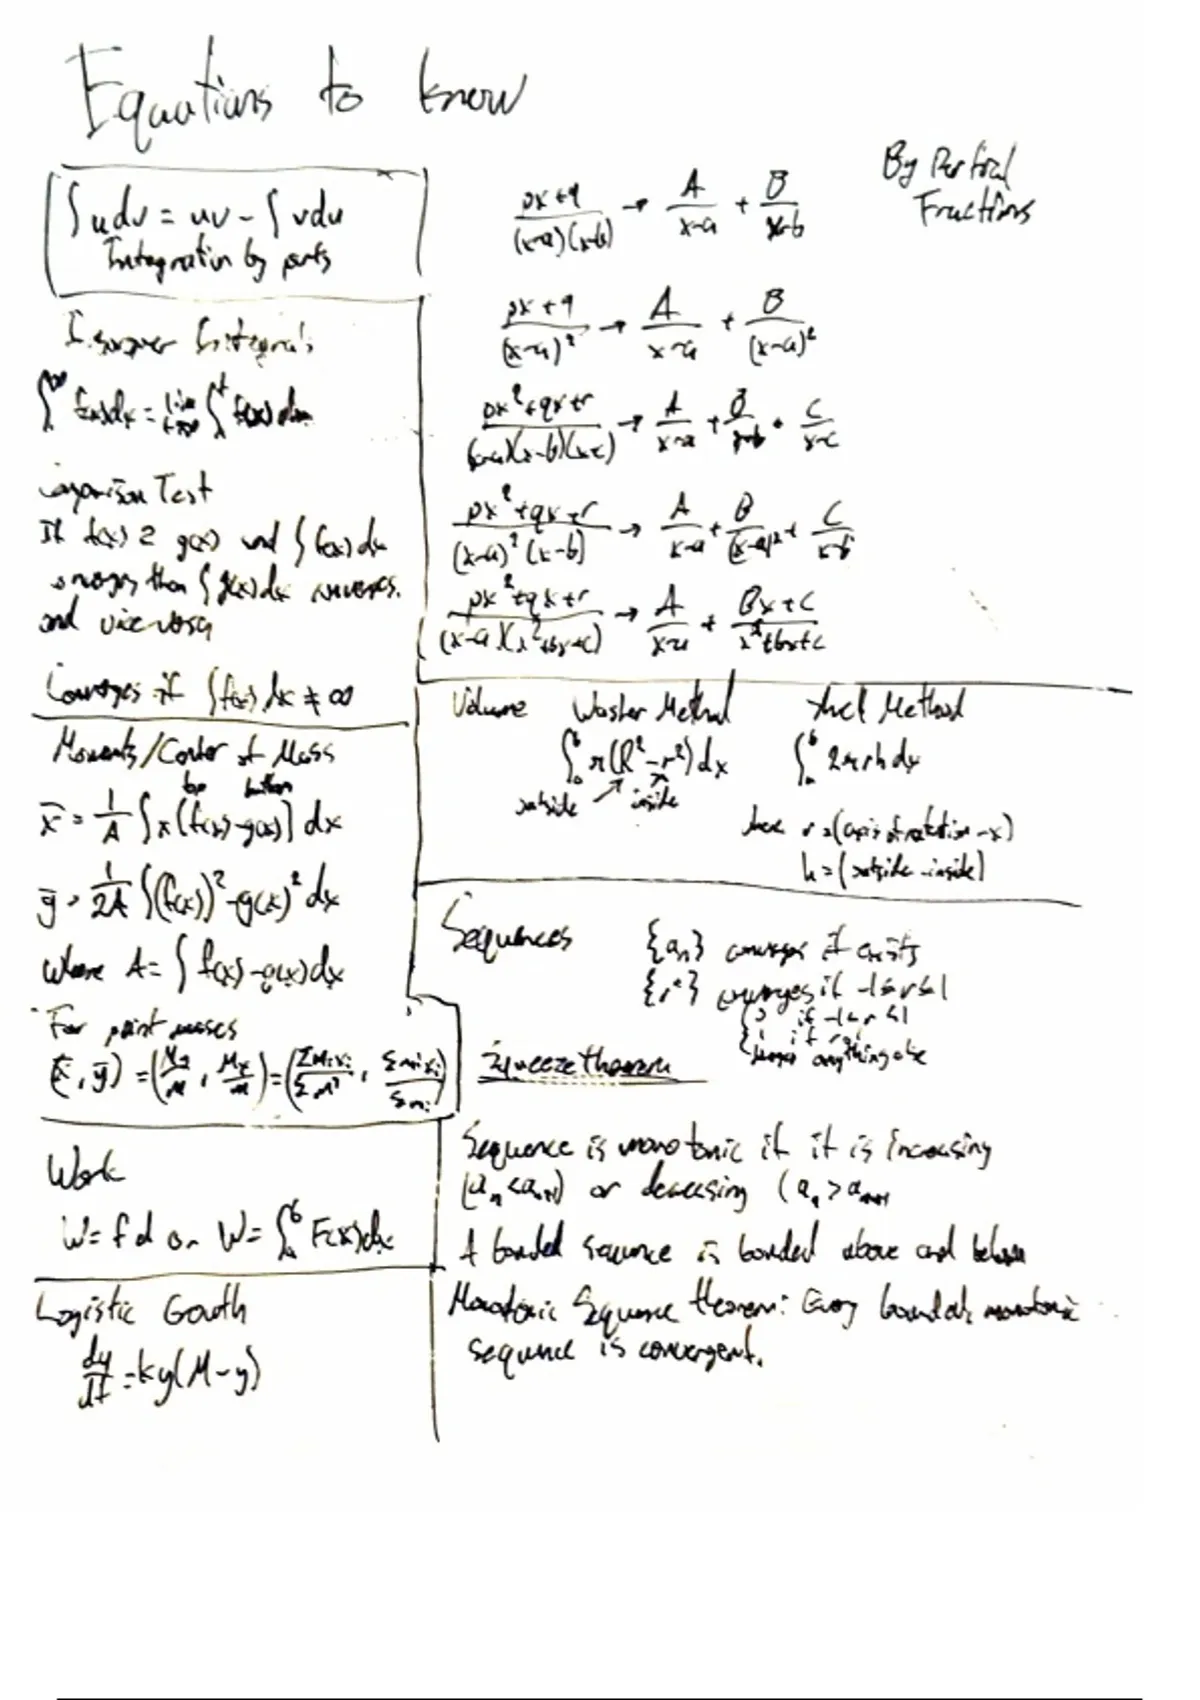 Equations to know
∫udv = uv - ∫vdu
Integration by parts
Improper Integrals
∫ f(x)dx = lim ∫ f(x)dx
Comparison Test
If f(x) ≥ g(x) and ∫f(x)dx
converges then ∫g(x)dx converges.
and vice versa
Converges if ∫f(x)dx ≠ ∞
Moments/Center of Mass
top bottom
x̄ = 1/A ∫x(f(x)-g(x)] dx
ȳ = 1/2A ∫(f(x))²-g(x)² dx
where A = ∫ f(x)-g(x)dx
For point masses
(x̄, ȳ) = (My/M, Mx/M) = (Σmixi/Σm, Σmixi/Σmi)
Work
W = fd or W = ∫ₐᵇ F(x)dx
Logistic Growth
dy/dt = ky(M-y)
By Partial
Fractions
px+q/(x-a)(x-b) → A/x-a + B/x-b
px+q/(x-a)² → A/x-a + B/(x-a)²
px²+qx+r/(x-a)(x-b)(x-c) → A/x-a + B/x-b + C/x-c
px²+qx+r/(x-a)²(x-b) → A/x-a + B/(x-a)² + C/x-b
px²+qx+r/(x-a)(x²+bx+c) → A/x-a + Bx+C/x²+bx+c
Volume Washer Method Shell Method
∫ₐᵇ π(R²-r²)dx ∫ₐᵇ 2πrh dx
outside inside
where r = (axis of rotation - x)
h = (outside - inside)
Sequences {aₙ} converges if exists
{rⁿ} converges if -1≤r≤1
if -1<r<1
anything else
Squeeze theorem
Sequence is monotonic if it is increasing
(aₙ<aₙ₊₁) or decreasing (aₙ>aₙ₊₁
A bonded sequence is bonded above and below
Monotonic Sequence theorem: Every bounded, monotonic
sequence is convergent.